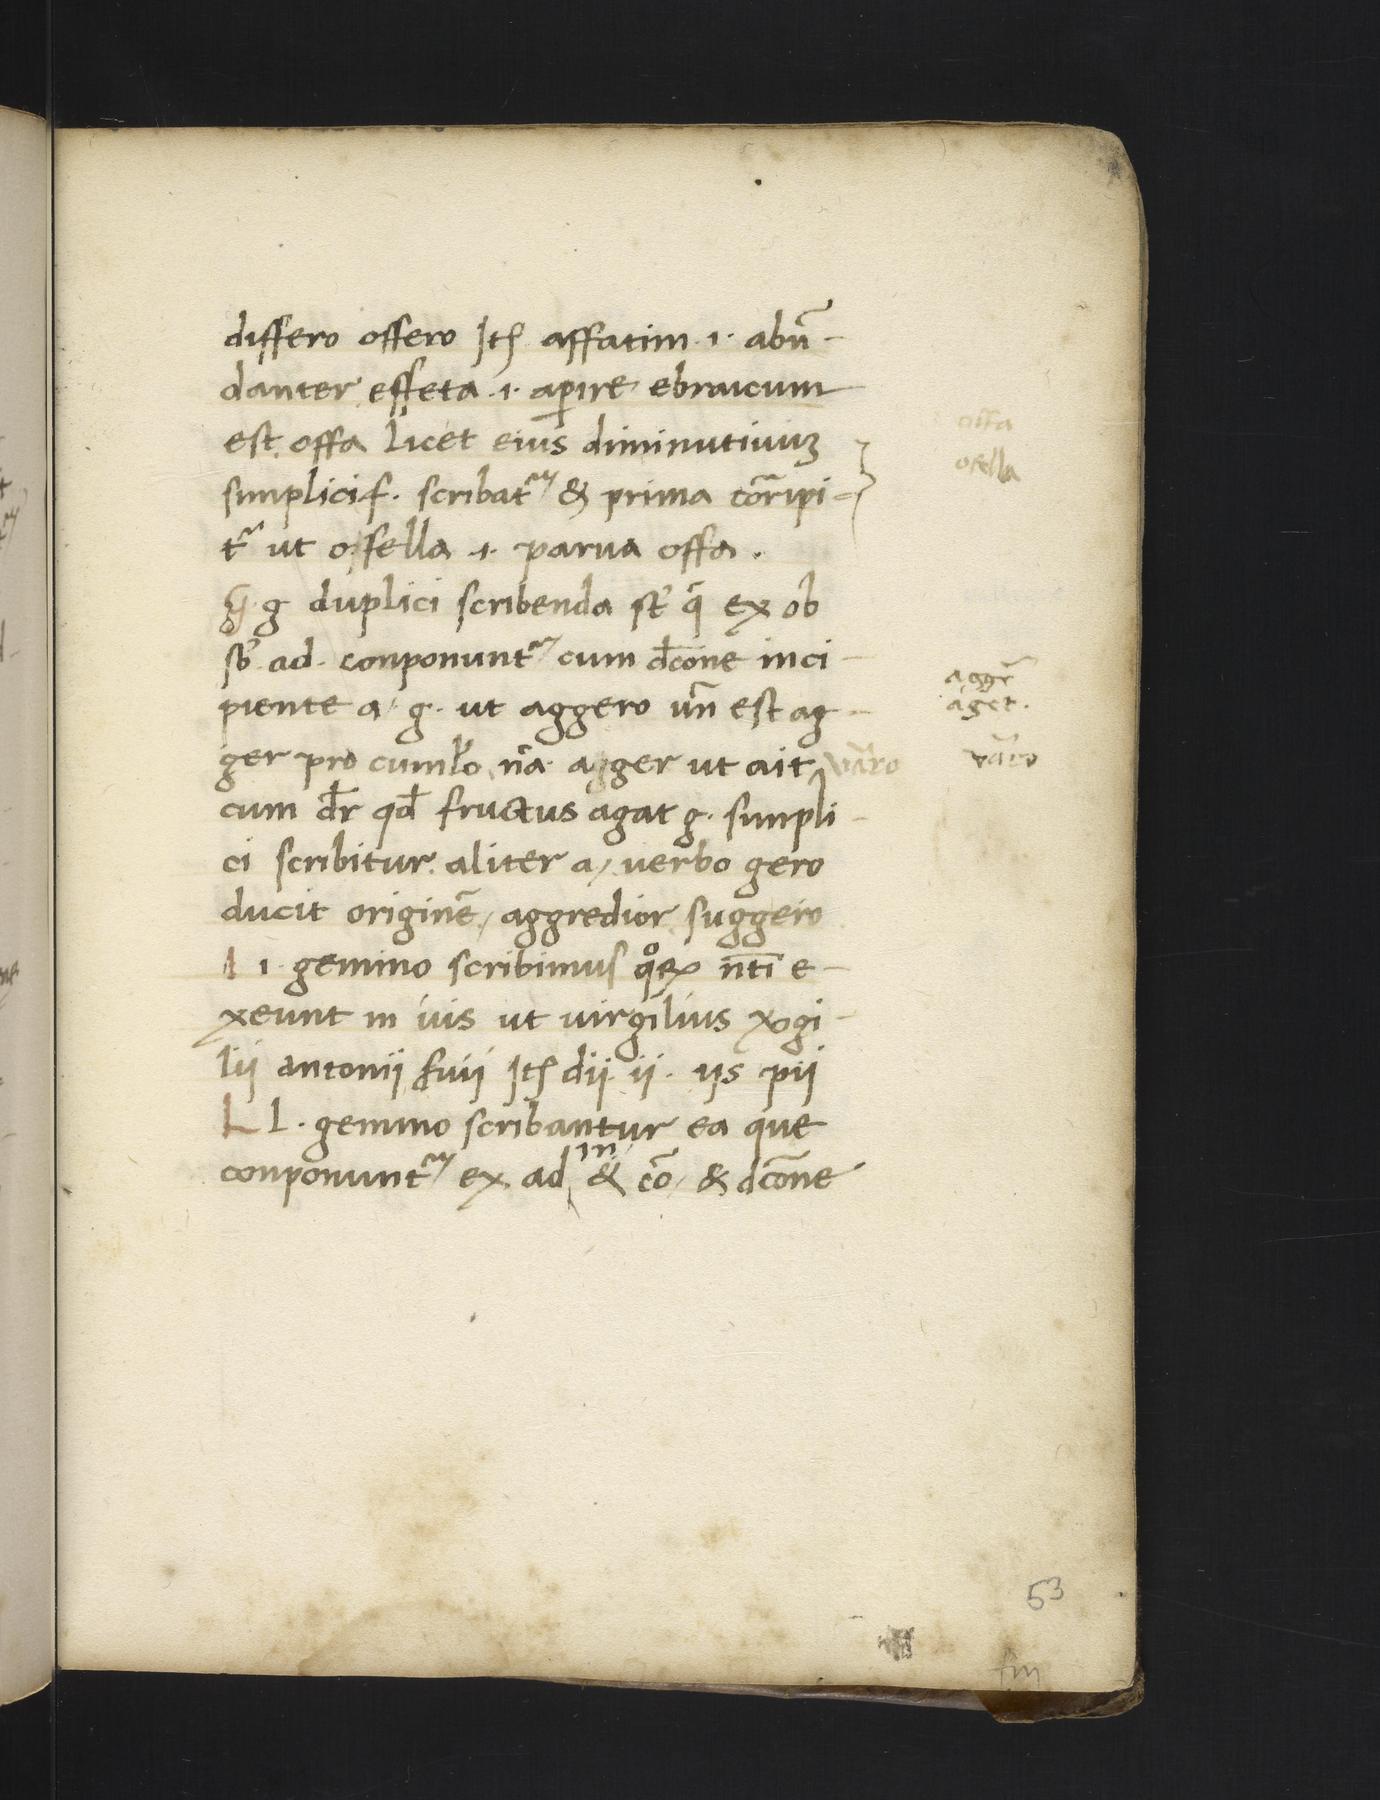 differo offero Itꝫ affatim .i. abū-
danter effeta .i. aꝑire ebraicum
est offa licet eius diminutiuuꝫ
simplici f. scribatr̃ & prima cor̃ipi-
tr̃ ut offella .i. parua offa .
G g duplici scribenda st̃ q̃ ex ob
sb̃ ad. conponuntr̃ cum dc̄one inci-
piente a, g. ut aggero un̄ est ag-
ger pro cumlo nã agger ut ait varro
cum dr̄ qd̄ fructus agat g. simpli-
ci scribitur aliter a, uerbo gero
ducit originē, aggredior suggero
I i. gemino scribimus qoꝝ ntī e-
xeunt in ius ut uirgilius
lii antonii fuii Itꝫ dii ii. iis pii
L l. gemino scribantur ea que
conponuntr̃ ex ad in & cō, & dcōne
offa
ofella
aggr̄
aget.
varro
53
fin